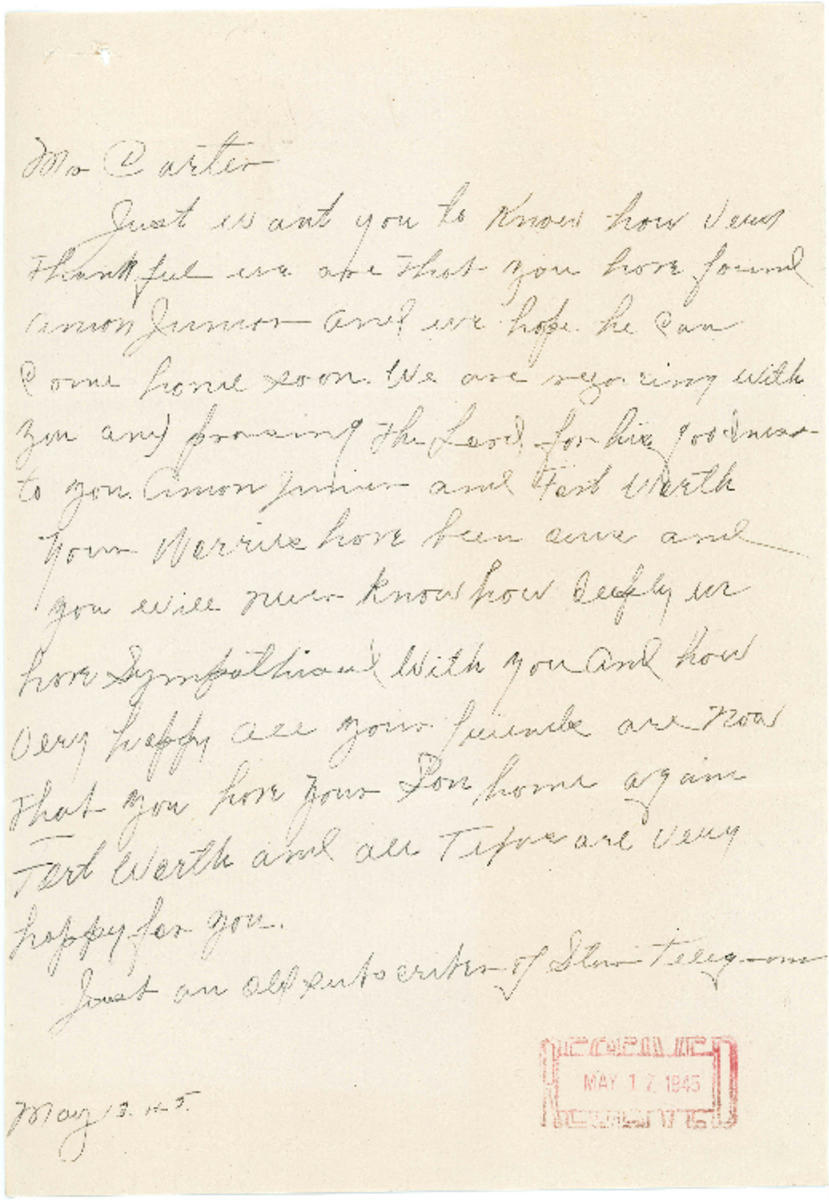 Mr Carter
Just want you to know how very
thankful we are that you have found
Amon Junior and we hope he can
Come home soon. We are regoicing with
you and praising the Lord for his goodness
to you. Amon Junior and Fort Worth
your Worries have been ours and
you will never know how deeply we
have Sympathized With you and how
Very happy all your friends are now
that you have your Son home again
Fort Worth and all Texas are very
happy for you.
Just an old subscriber of Star Telegram
May 13. 45.
MAY 17 1945